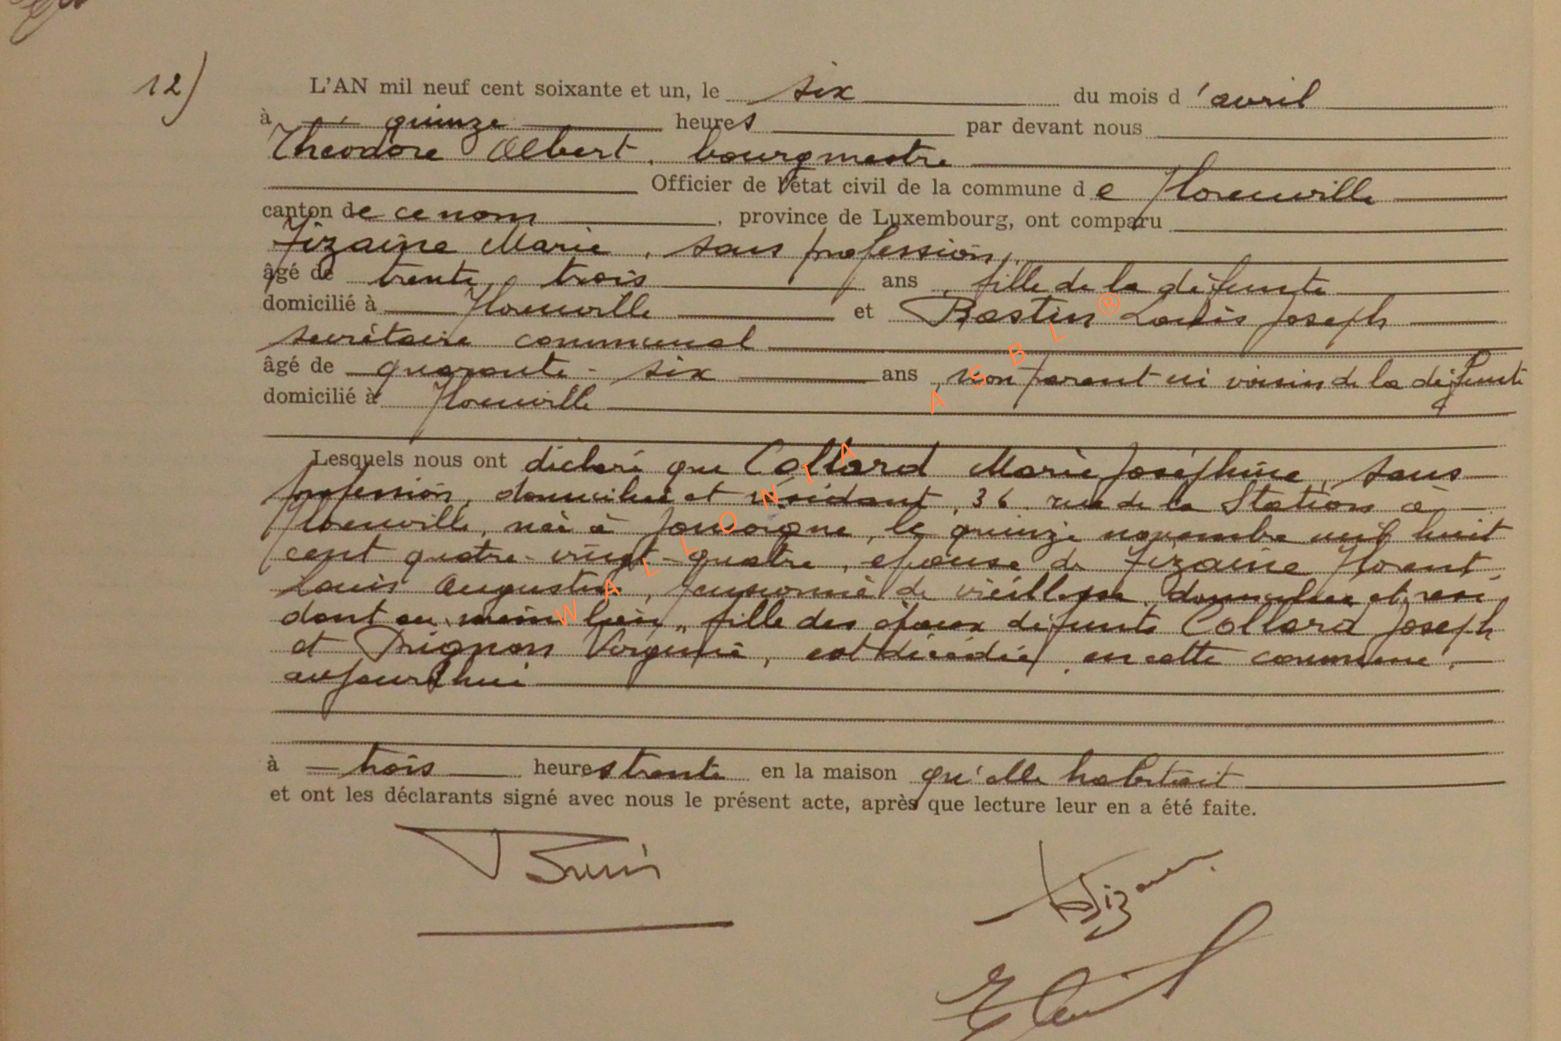 12)
L'AN mil neuf cent soixante et un, le six du mois d'avril
à quinze heures par devant nous
Théodore Albert, bourgmestre
Officier de l'état civil de la commune de Florenville
canton de ce nom, province de Luxembourg, ont comparu
Fizaine Marie, sans profession,
âgé de trente-trois ans, fille de la défunte
domicilié à Florenville et Bastin Louis Joseph
secrétaire communal
âgé de quarante-six ans, non parent ni voisin de la défunte
domicilié à Florenville
Lesquels nous ont déclaré que Collard Marie Joséphine, sans
profession, domiciliée et résidant, 36 rue de la Station à
Florenville, née à Jamoigne, le quinze novembre mil huit
cent quatre-vingt-quatre, épouse de Fizaine Florent,
Louis Augustin, pensionné de vieillesse, domicilié et rési
dant au même lieu, fille des époux défunts Collard Joseph
et Prignon Virginie, est décédée en cette commune,
aujourd'hui
à trois heures trente en la maison qu'elle habitait
et ont les déclarants signé avec nous le présent acte, après que lecture leur en a été faite.
WALLONIA ASBL®